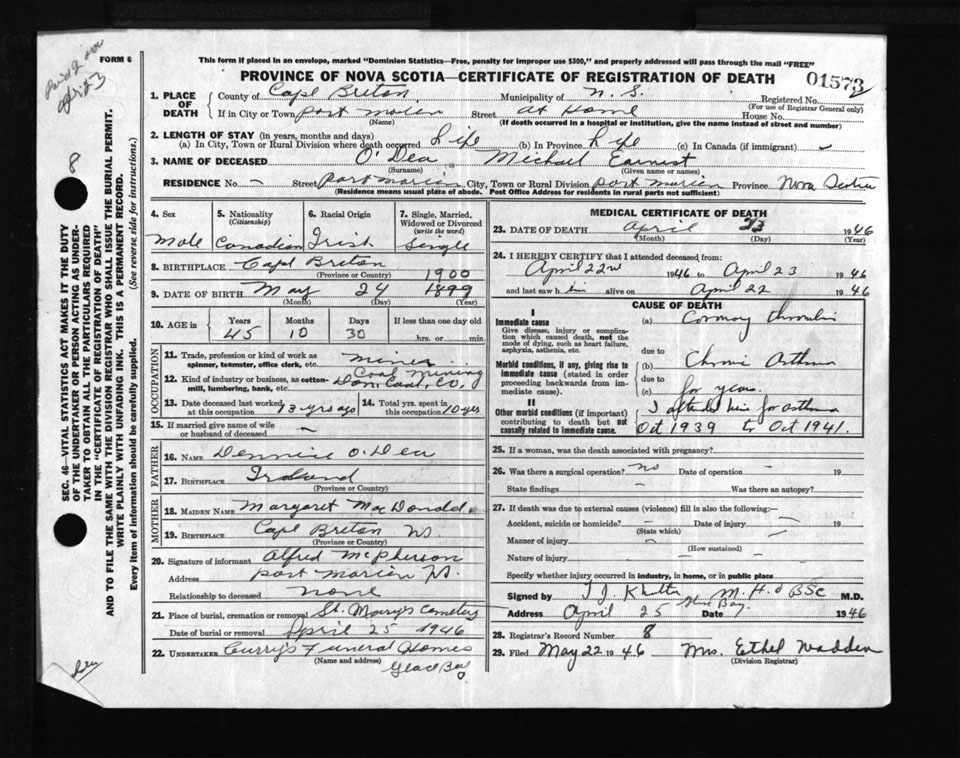 Paid 2
FORM 6
This form if placed in an envelope, marked "Dominion Statistics—Free, penalty for improper use $300," and properly addressed will pass through the mail "FREE"
PROVINCE OF NOVA SCOTIA—CERTIFICATE OF REGISTRATION OF DEATH
01573
1. PLACE OF DEATH
County of Cape Breton Municipality of N. S. Registered No.
(For use of Registrar General only)
If in City or Town Port Morien Street at Home House No.
(Name) (If death occurred in a hospital or institution, give the name instead of street and number)
2. LENGTH OF STAY (in years, months and days)
(a) In City, Town or Rural Division where death occurred Life (b) In Province Life (c) In Canada (if immigrant)
3. NAME OF DECEASED O'Dea Michael Earnest
(Surname) (Given name or names)
RESIDENCE No. – Street Port Morien City, Town or Rural Division Port Morien Province Nova Scotia
(Residence means usual place of abode. Post Office Address for residents in rural parts not sufficient)
4. Sex
Male
5. Nationality
(Citizenship)
Canadian
6. Racial Origin
Irish
7. Single, Married, Widowed or Divorced
(write the word)
Single
8. BIRTHPLACE Cape Breton
(Province or Country)
1900
9. DATE OF BIRTH May 24 1899
(Month) (Day) (Year)
10. AGE in
Years Months Days If less than one day old
45 10 30 hrs. or min.
OCCUPATION
11. Trade, profession or kind of work as
spinner, teamster, office clerk, etc. miner
12. Kind of industry or business, as cotton-
mill, lumbering, bank, etc.
Coal Mining
Dom Coal, Co,
13. Date deceased last worked
at this occupation 13 yrs ago
14. Total yrs. spent in
this occupation 10 yrs
15. If married give name of wife
or husband of deceased –
FATHER
16. NAME Dennise O'Dea
17. BIRTHPLACE Ireland
(Province or Country)
MOTHER
18. MAIDEN NAME Margaret MacDonald
19. BIRTHPLACE Cape Breton NS.
(Province or Country)
20. Signature of informant Alfred McPherson
Address Port Morien NS.
Relationship to deceased none
21. Place of burial, cremation or removal St. Marys Cemetery
Date of burial or removal April 25 1946
22. UNDERTAKER Curry's Funeral Homes
(Name and address)
Glace Bay
MEDICAL CERTIFICATE OF DEATH
23. DATE OF DEATH April 23 1946
(Month) (Day) (Year)
24. I HEREBY CERTIFY that I attended deceased from:
April 22nd 1946 to April 23 1946
and last saw him alive on April 22 1946
CAUSE OF DEATH
I
Immediate cause
Give disease, injury or complication which caused death, not the mode of dying, such as heart failure, asphyxia, asthenia, etc.
(a)
due to
Morbid conditions, if any, giving rise to immediate cause (stated in order proceeding backwards from immediate cause).
(b) Chronic Asthma
due to
(c) for years.
II
Other morbid conditions (if important) contributing to death but not causally related to immediate cause.
I attended him for asthma
Oct 1939 to Oct 1941.
25. If a woman, was the death associated with pregnancy?
26. Was there a surgical operation? no Date of operation – 19
State findings – Was there an autopsy?
27. If death was due to external causes (violence) fill in also the following:—
Accident, suicide or homicide? – Date of injury – 19
(State which)
Manner of injury –
(How sustained)
Nature of injury –
Specify whether injury occurred in industry, in home, or in public place
Signed by M.D.
Address Glace Bay Date
April 25 1946
28. Registrar's Record Number 8
29. Filed May 22 1946 Mrs. Ethel Wadden
(Division Registrar)
SEC. 46—VITAL STATISTICS ACT MAKES IT THE DUTY
OF THE UNDERTAKER OR PERSON ACTING AS UNDER-
TAKER TO OBTAIN ALL THE PARTICULARS REQUIRED
IN THE "CERTIFICATE OF REGISTRATION OF DEATH"
AND TO FILE THE SAME WITH THE DIVISION REGISTRAR WHO SHALL ISSUE THE BURIAL PERMIT.
WRITE PLAINLY WITH UNFADING INK. THIS IS A PERMANENT RECORD.
Every item of information should be carefully supplied. (See reverse side for instructions.)
8